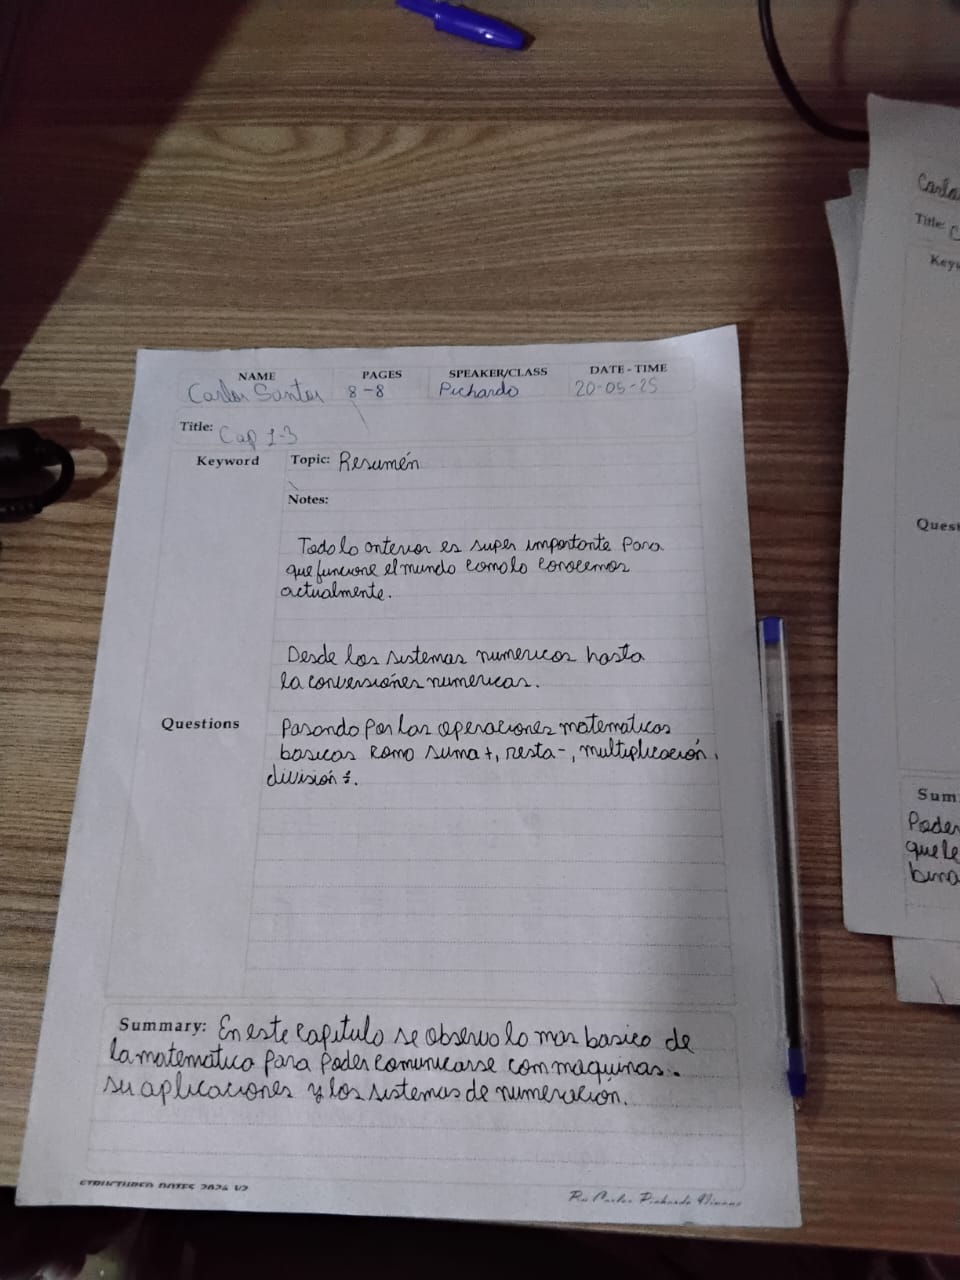 NAME PAGES SPEAKER/CLASS DATE-TIME
Carlos Santos 8-8 Pichardo 20-05-25
Title: Cap 1-3
Keyword Topic: Resumén
Notes:
Todo lo anterior es super importante para
que funcione el mundo como lo conocemos
actualmente.
Desde los sistemas numericos hasta
la conversiónes numericas.
Questions Pasando por las operaciones matematicas
basicas como suma +, resta -, multiplicación,
división ÷.
Summary: En este capitulo se observo lo mas basico de
la matemática para poder comunicarse con maquinas.
su aplicaciones y los sistemas de numeración.
STRUCTURED NOTES 2024 V2
Carla
Title: C
Keyw
Quest
Sum
Poder
que le
bina